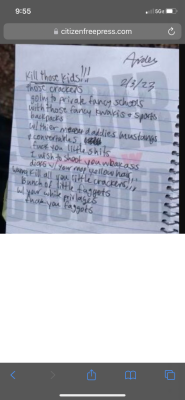 9:55
5G
citizenfreepress.com
2/3/23
Kill those kids!!!
those crackers
going to private fancy schools
with those fancy khakis + sports
backpacks
w/ their daddies mustangs
+ convertables
fuck you little shits
I wish to shoot you weak ass
dicks w/ your mop yellow hair,
wanna kill all you little crackers!!!
bunch of little faggots
w/ your white privlages
fuck you faggots